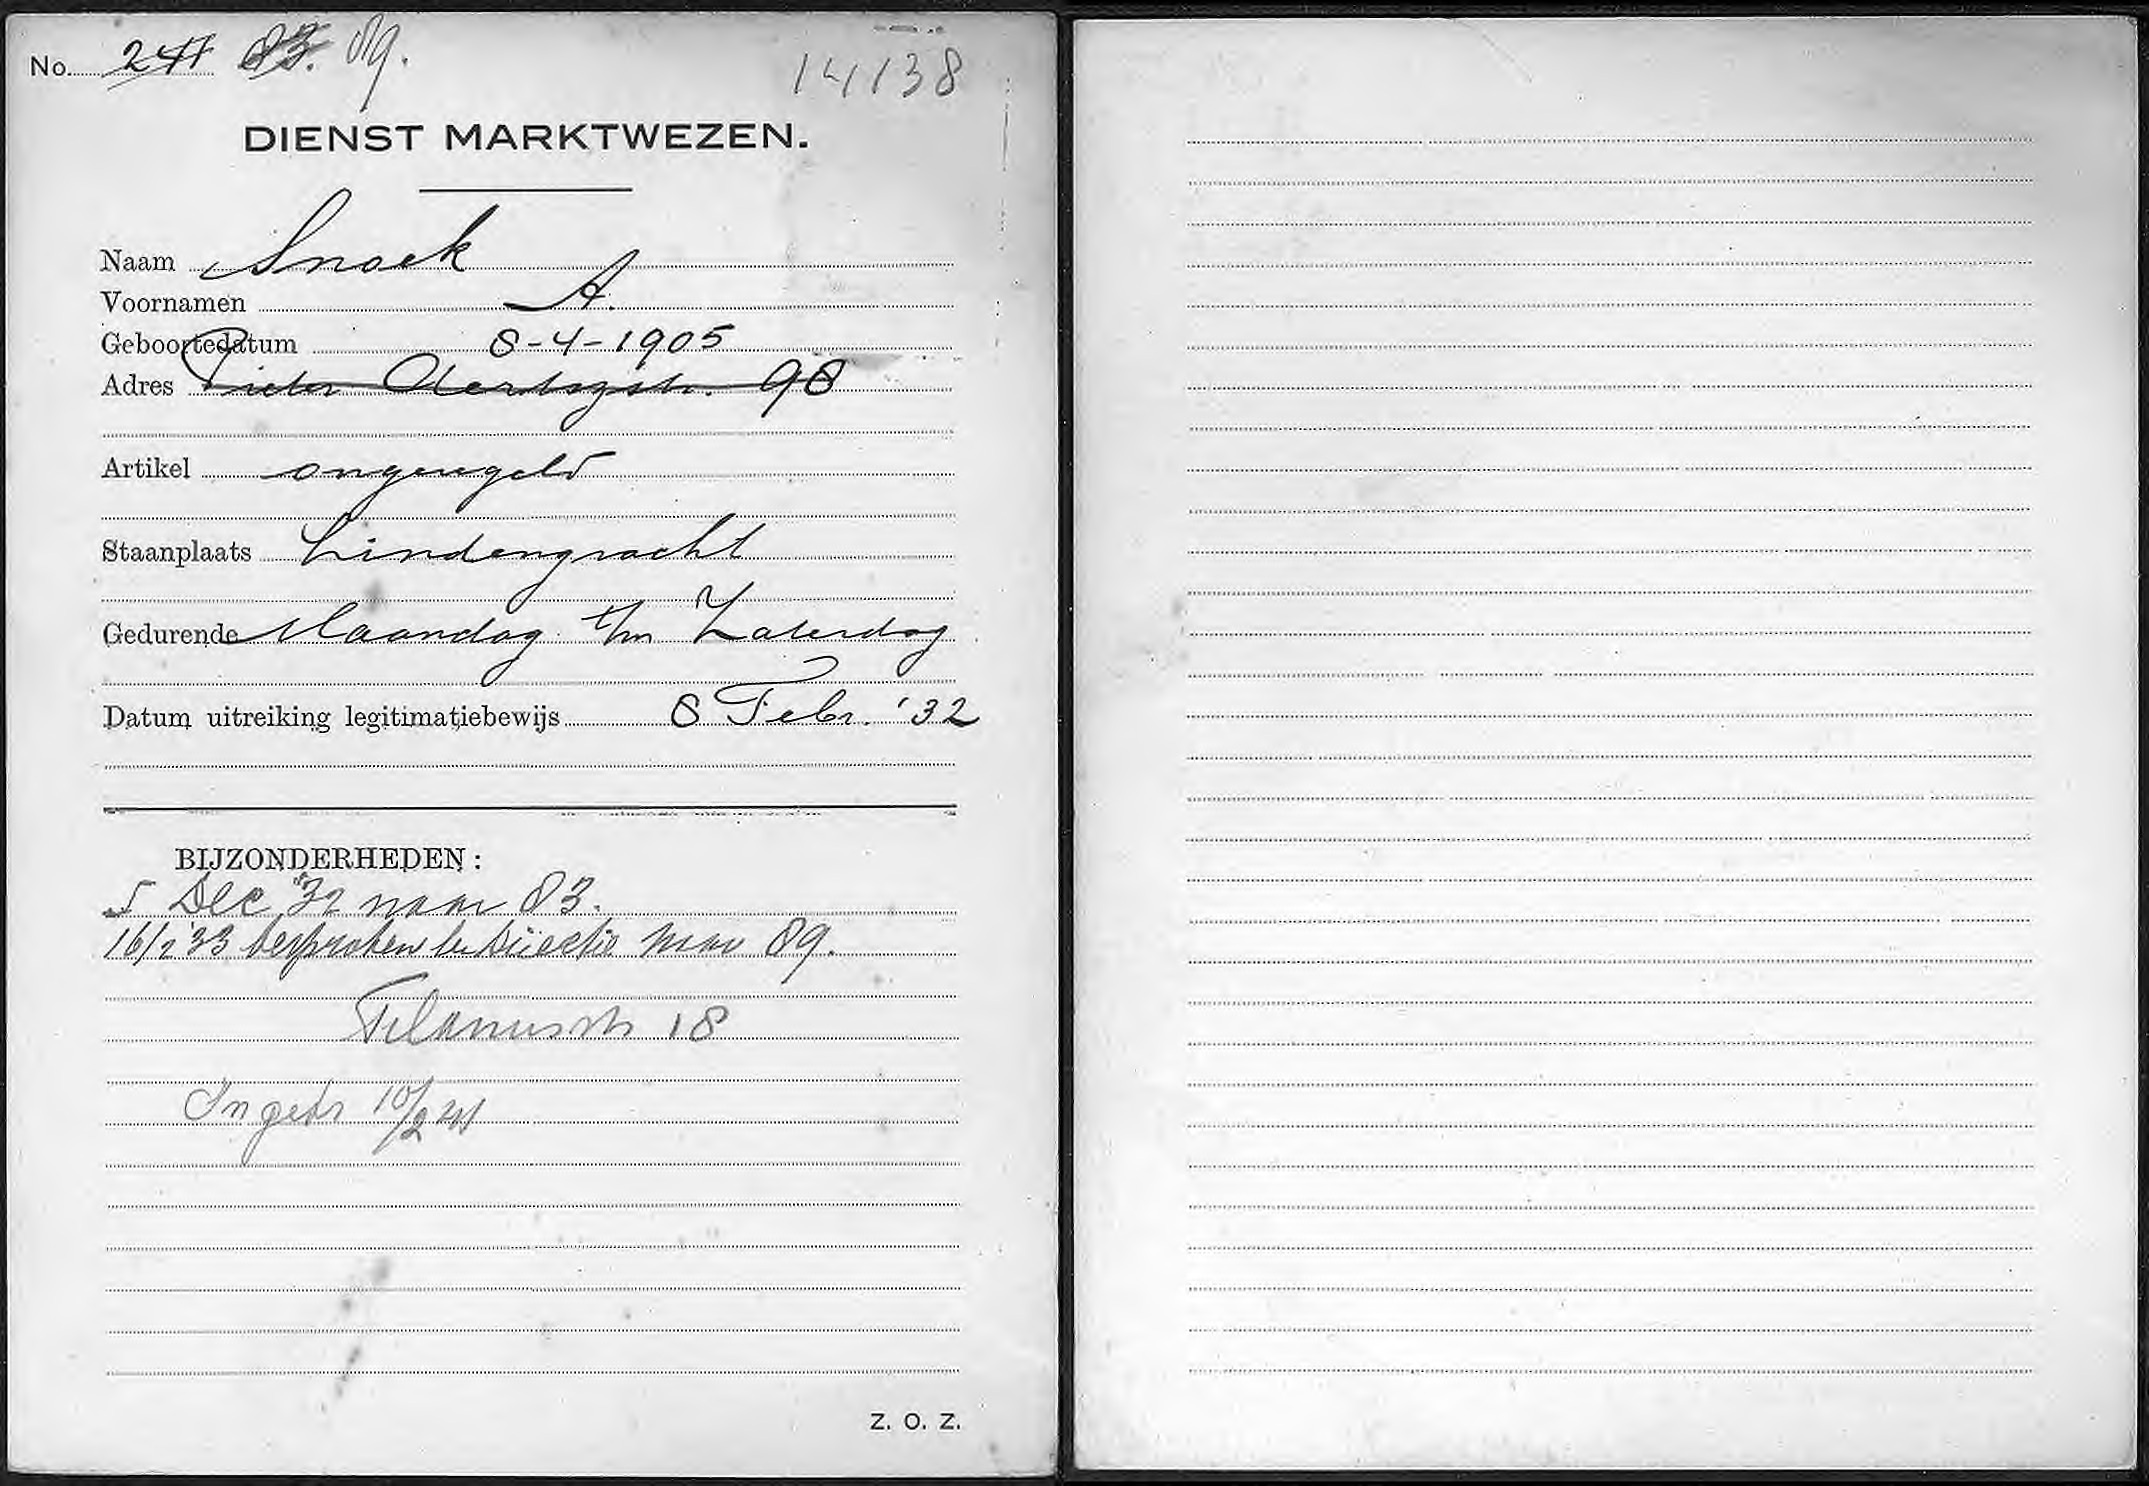 No. 241 83. 89.
14138
DIENST MARKTWEZEN.
Naam Snoek
Voornamen A.
Geboortedatum 8-4-1905
Adres Pieter Aertszstr. 98
Artikel ongeregeld
Staanplaats Lindengracht
Gedurende Maandag t/m Zaterdag
Datum uitreiking legitimatiebewijs 8 Febr. '32
BIJZONDERHEDEN:
5 Dec '32 naar 83.
16/2 33 besproken directie naar 89.
18
Ingetr 10/2 41
Z. O. Z.